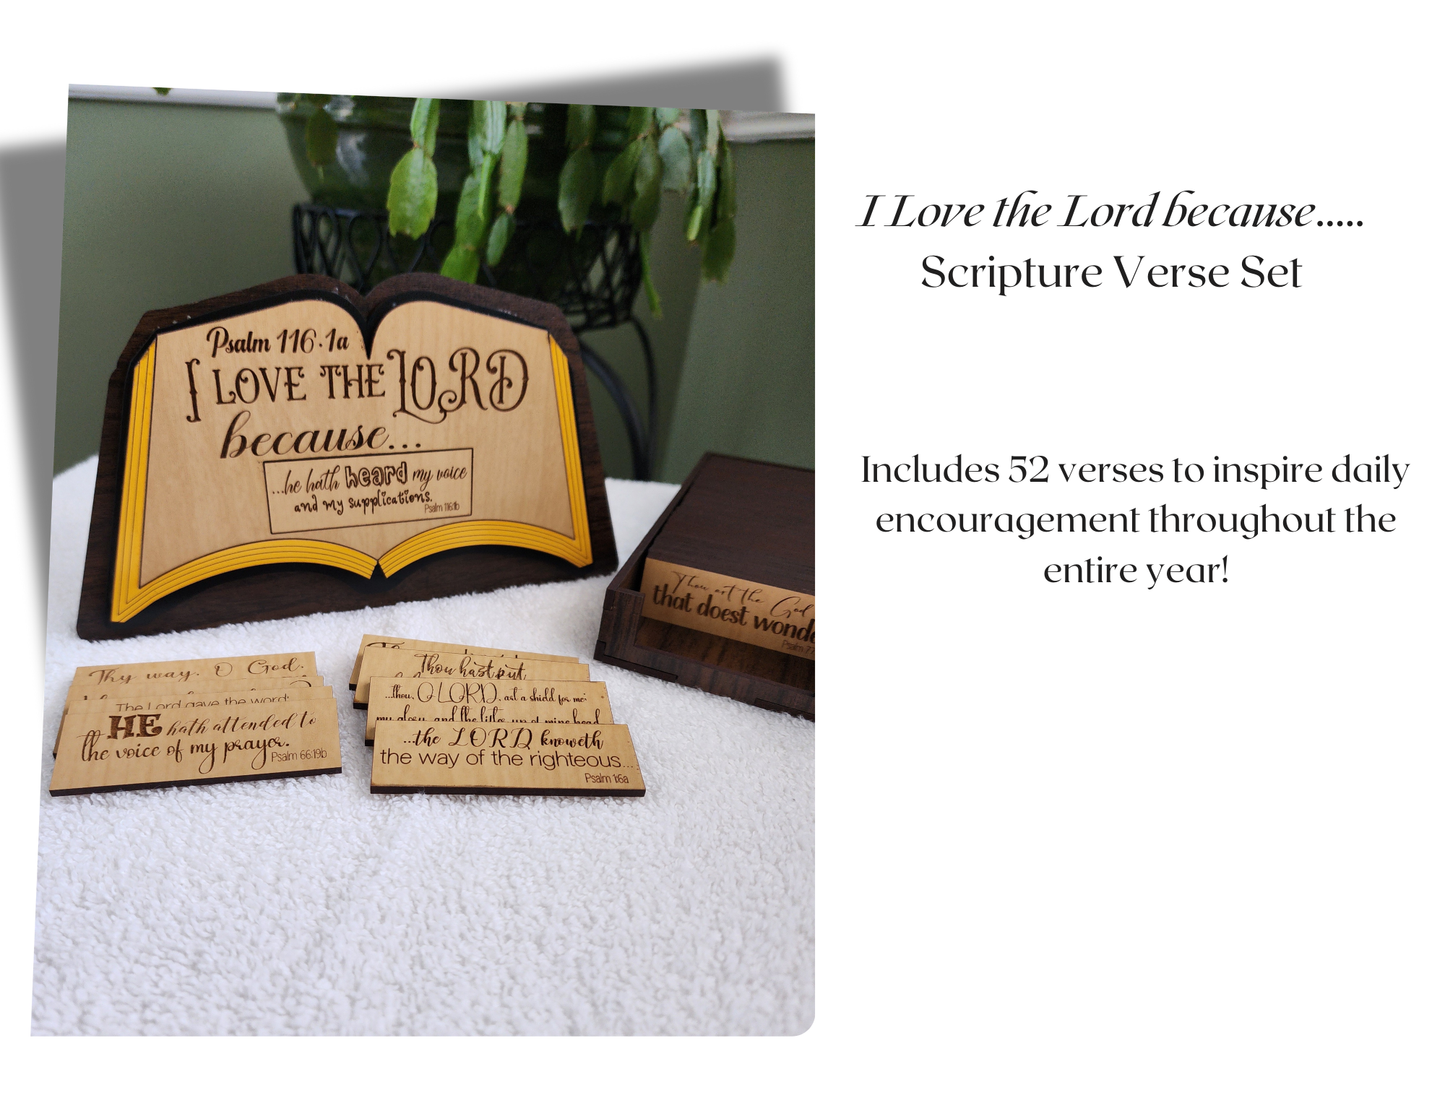 Psalm 116:1a
I LOVE THE LORD
because...
...he hath heard my voice
and my supplications.
Psalm 116:1b
Thou art the God
that doest
Thy way, O God,
The Lord gave the word:
HE hath attended to
the voice of my prayer.
Psalm 66:19b
Thou hast put
...thou, O LORD, art a shield for me;
my glory, and the lifter up of mine head.
...the LORD knoweth
the way of the righteous...
Psalm 1:6a
I Love the Lord because.....
Scripture Verse Set
Includes 52 verses to inspire daily
encouragement throughout the
entire year!